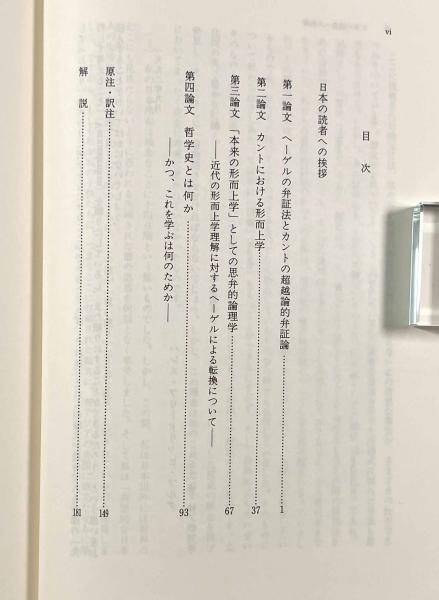 vi
目次
日本の読者への挨拶
第一論文 ヘーゲルの弁証法とカントの超越論的弁証論……1
第二論文 カントにおける形而上学……37
第三論文 「本来の形而上学」としての思弁的論理学……67
——近代の形而上学理解に対するヘーゲルによる転換について——
第四論文 哲学史とは何か……93
——かつ、これを学ぶは何のためか——
原注・訳注……149
解説……181